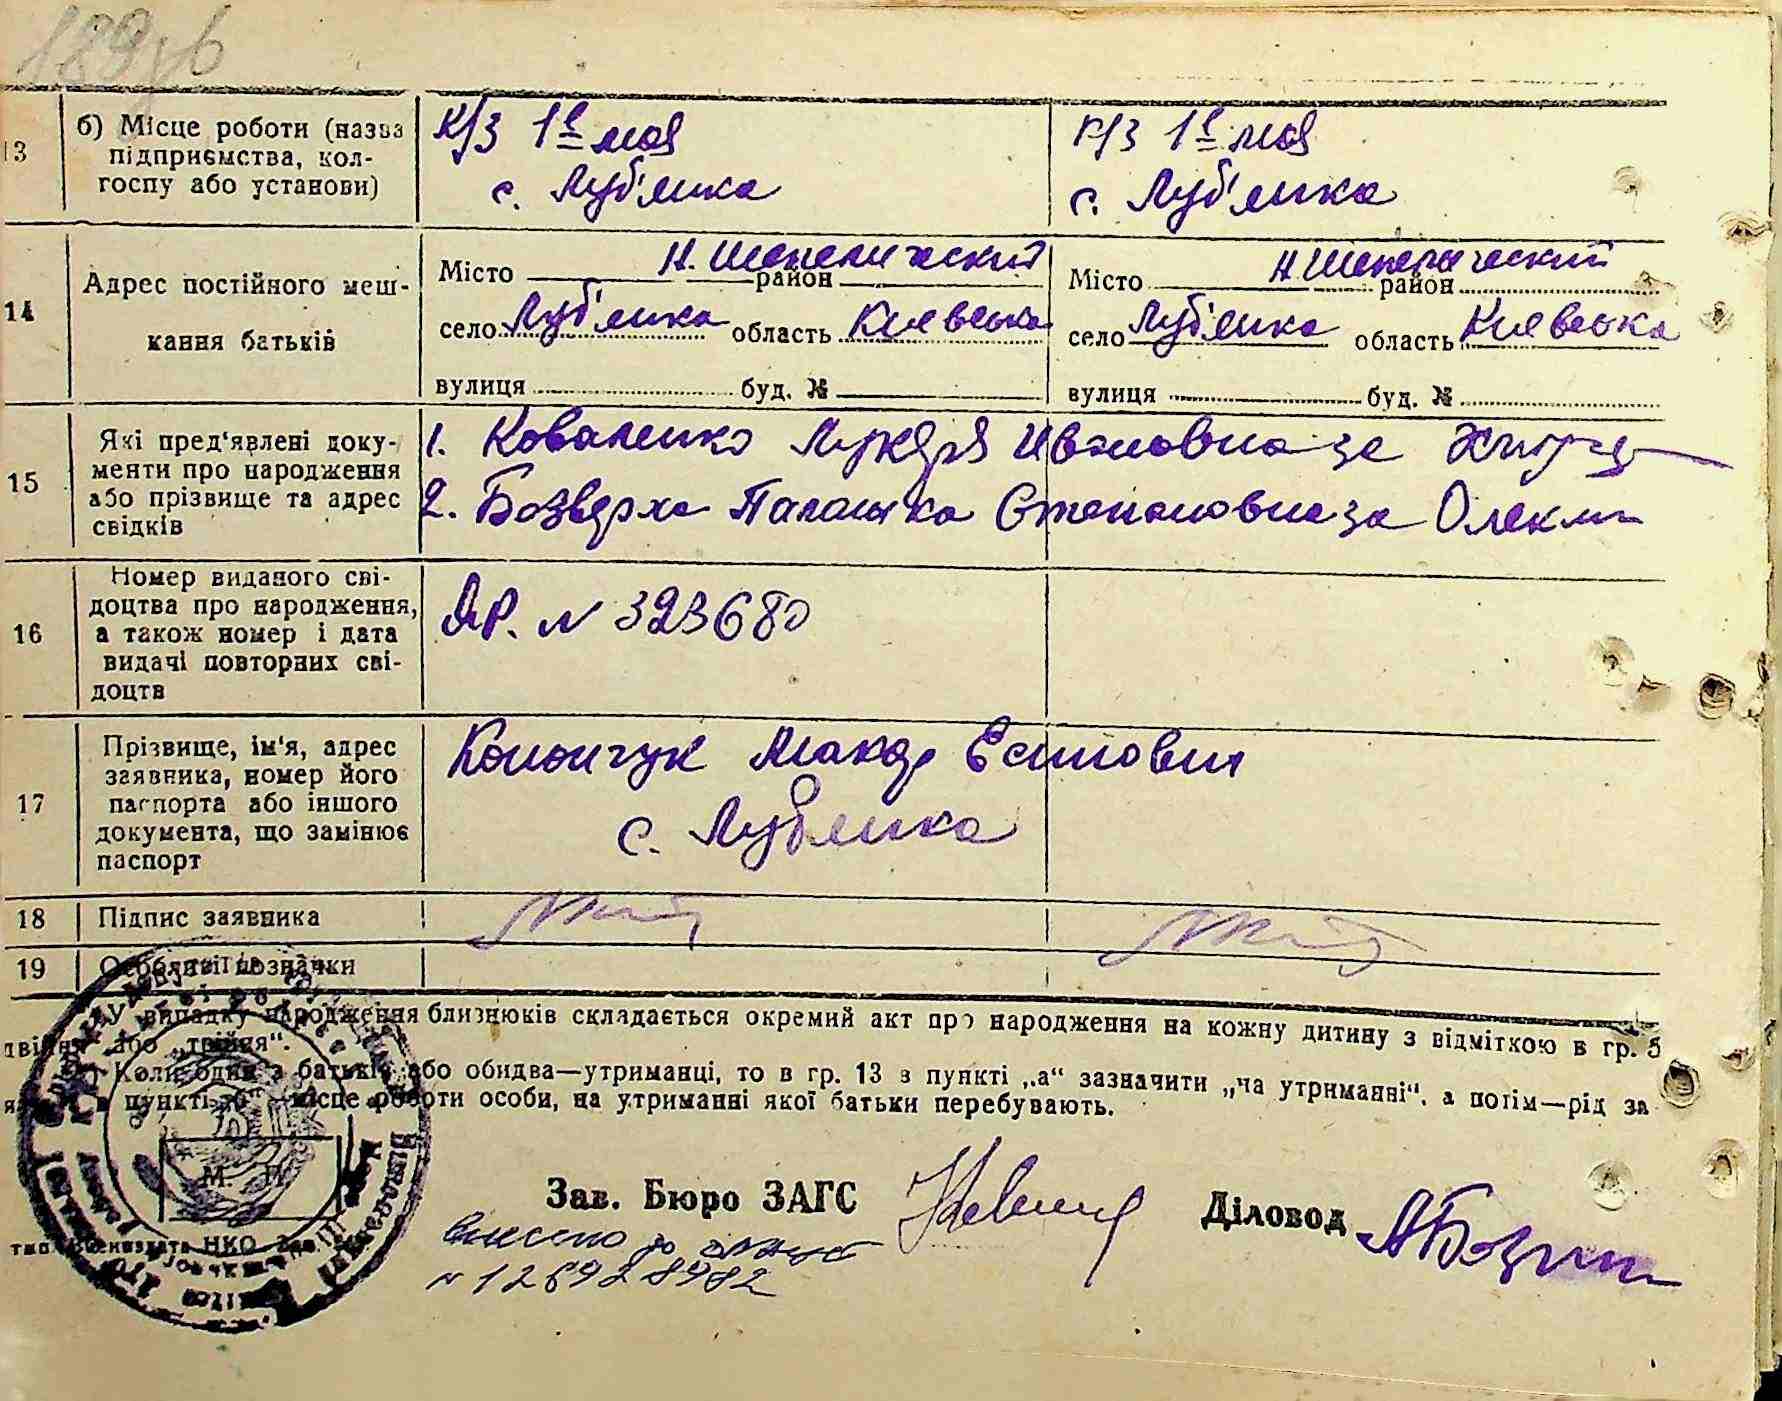 189зв
13
б) Місце роботи (назва
підприємства, кол-
госпу або установи)
к/з 1е мая
с. Луб'янка
к/з 1е мая
с. Луб'янка
14
Адрес постійного меш-
кання батьків
Місто район Н. Шепелический
село Луб'янка область Киевська
вулиця буд. №
Місто район Н Шепелический
село Луб'янка область Киевська
вулиця буд. №
15
Які пред'явлені доку-
менти про народження
або прізвище та адрес
свідків
1. Коваленко Лукеря Ивановна за
2. Безверха Палашка Степановна за
16
Номер виданого сві-
доцтва про народження,
а також номер і дата
видачі повторних сві-
доцтв
ЯР. N 323680
17
Прізвище, ім'я, адрес
заявника, номер його
паспорта або іншого
документа, що замінює
паспорт
Конончук Макар Есипович
с. Лубянка
18
Підпис заявника
19
Особливі позначки
У випадку народження близнюків складається окремий акт про народження на кожну дитину з відміткою в гр. 5
або „трійня“.
Коли один з батьків або обидва—утриманці, то в гр. 13 в пункті „а“ зазначити „на утриманні“, а потім—рід за
в пункті „б“ місце роботи особи, на утриманні якої батьки перебувають.
М. П.
Зав. Бюро ЗАГС
Діловод
внесено до
N 126928982
НКО